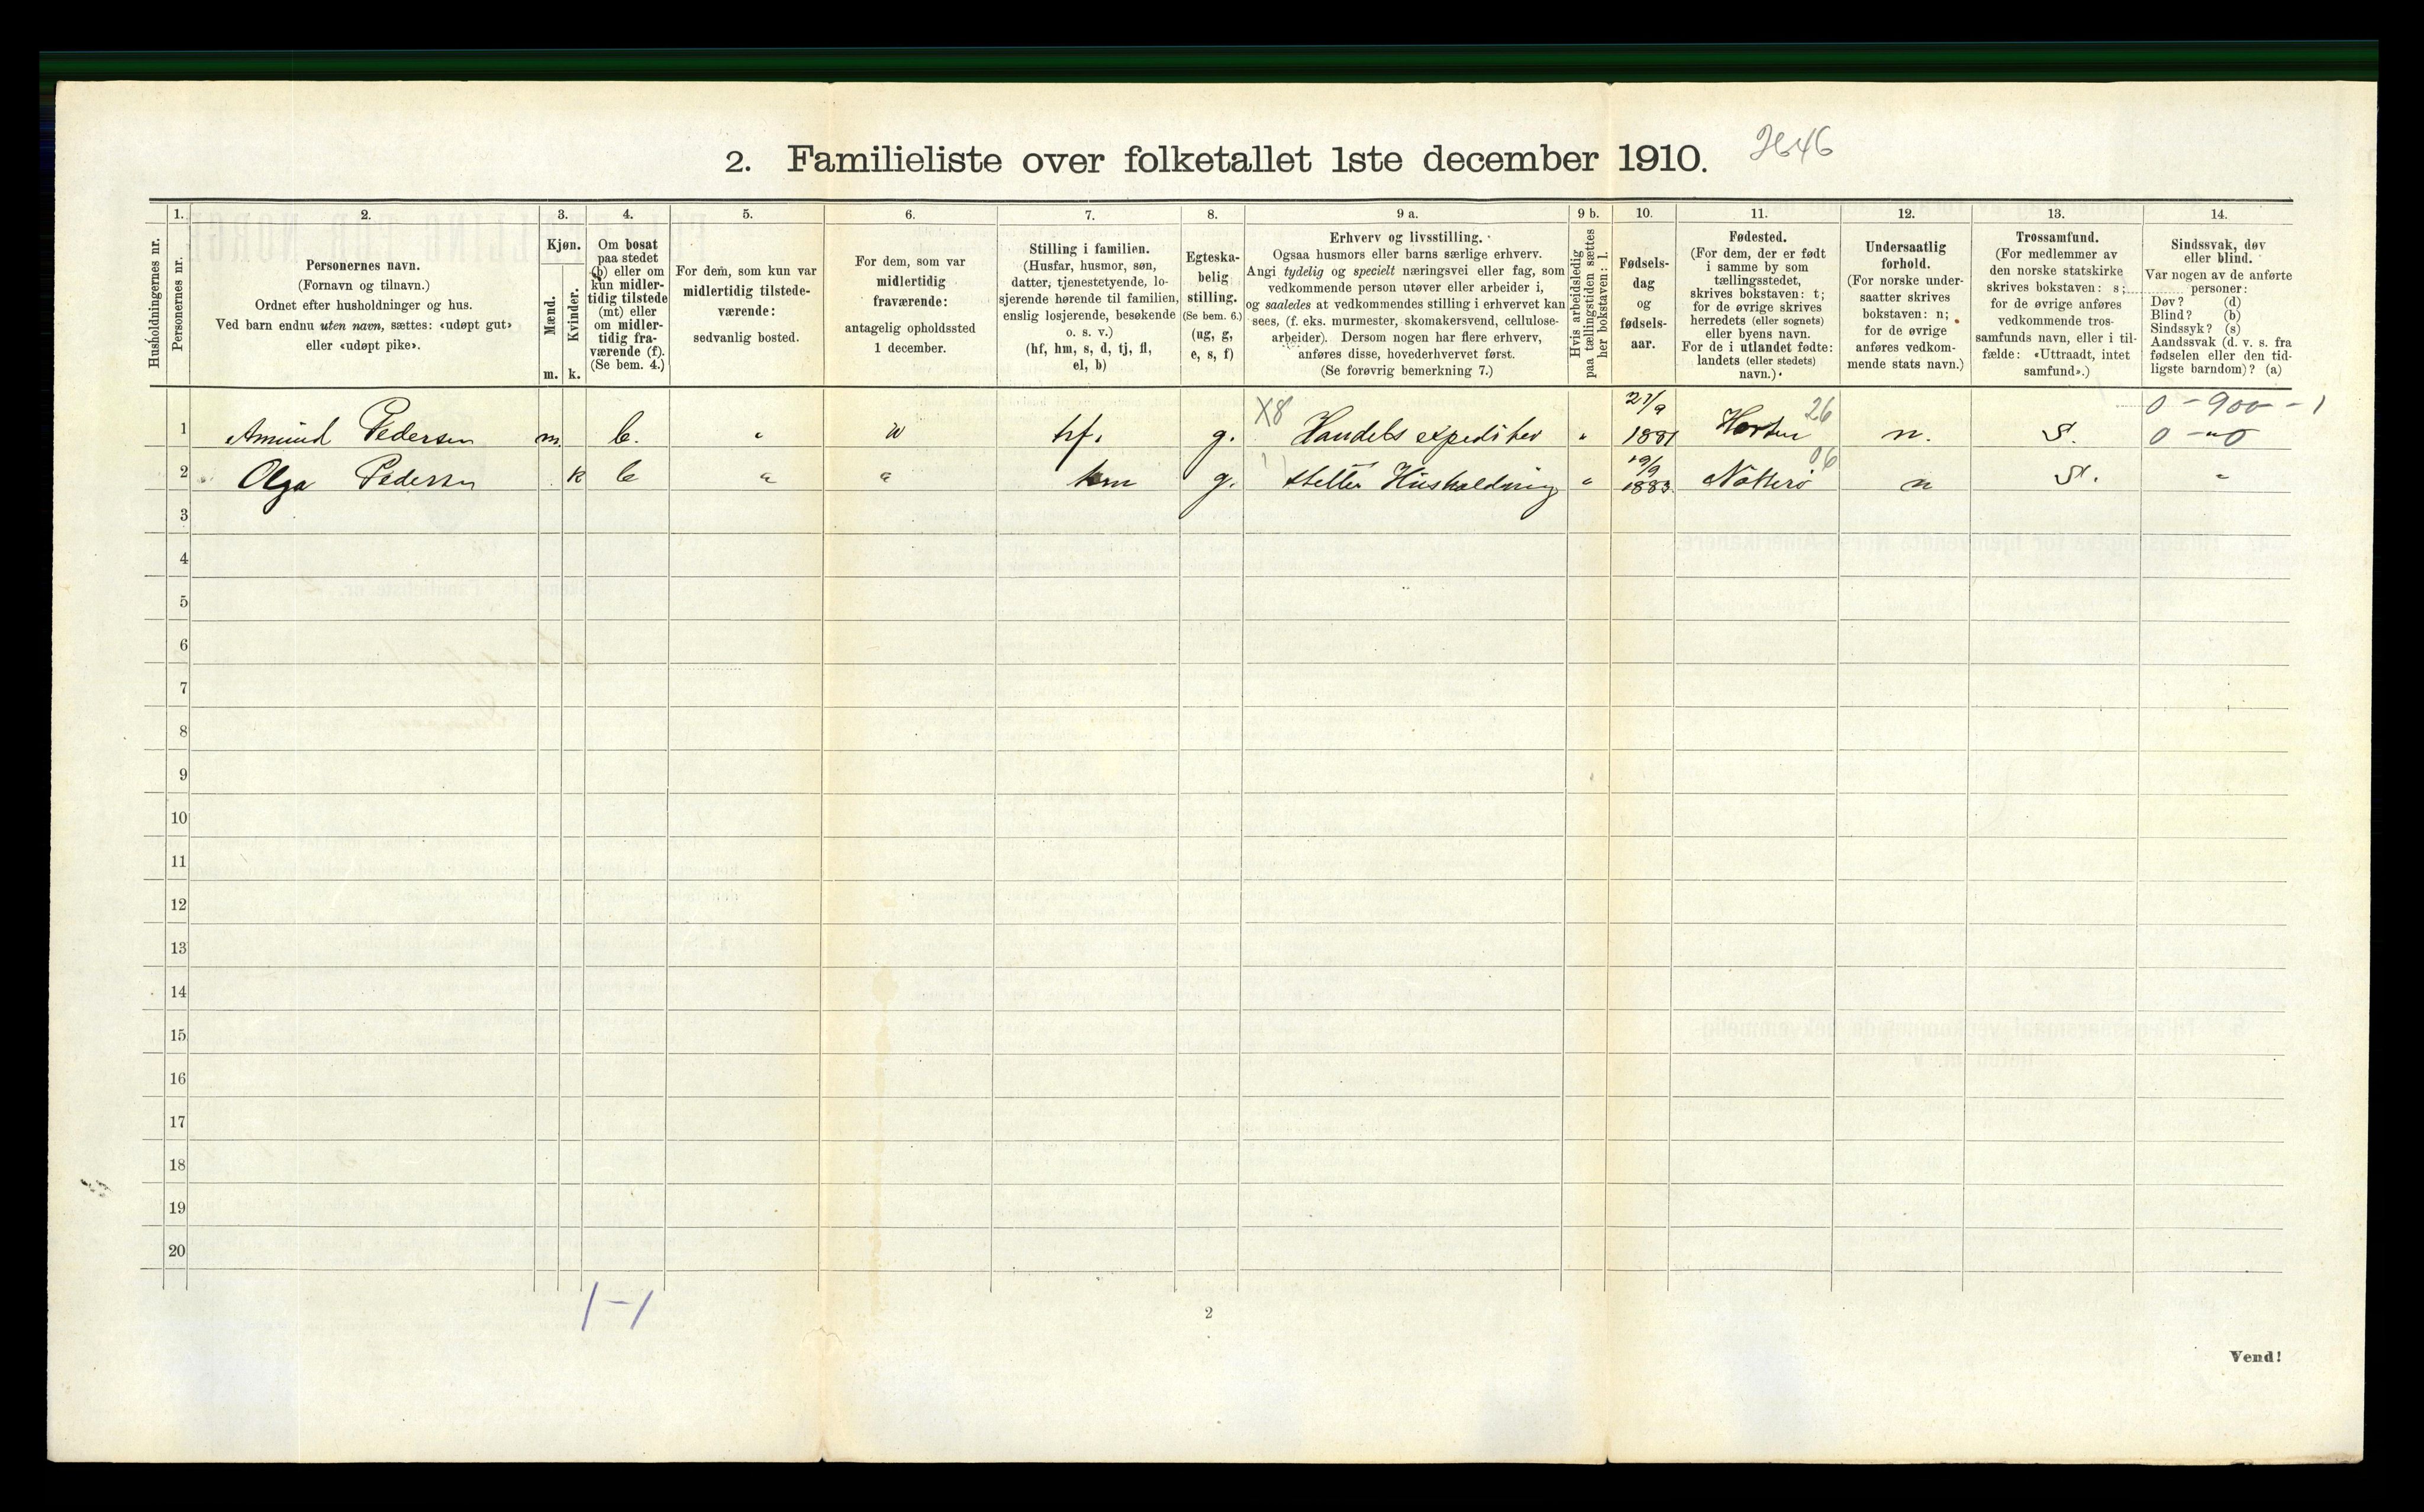 2. Familieliste over folketallet 1ste december 1910.
1. 2. 3. 4. 5. 6. 7. 8. 9 a. 9 b. 10. 11. 12. 13. 14.
Husholdningernes nr.
Personernes nr.
Personernes navn.
(Fornavn og tilnavn.)
Ordnet efter husholdninger og hus.
Ved barn endnu uten navn, sættes: «udøpt gut»
eller «udøpt pike».
Kjøn.
Mænd.
Kvinder.
m. k.
Om bosat
paa stedet
(b) eller om
kun midler-
tidig tilstede
(mt) eller
om midler-
tidig fra-
værende (f).
(Se bem. 4.)
For dem, som kun var
midlertidig tilstede-
værende:
sedvanlig bosted.
For dem, som var
midlertidig
fraværende:
antagelig opholdssted
1 december.
Stilling i familien.
(Husfar, husmor, søn,
datter, tjenestetyende, lo-
sjerende hørende til familien,
enslig losjerende, besøkende
o. s. v.)
(hf, hm, s, d, tj, fl,
el, b)
Egteska-
belig
stilling.
(Se bem. 6.)
(ug, g,
e, s, f)
Erhverv og livsstilling.
Ogsaa husmors eller barns særlige erhverv.
Angi tydelig og specielt næringsvei eller fag, som
vedkommende person utøver eller arbeider i,
og saaledes at vedkommendes stilling i erhvervet kan
sees, (f. eks. murmester, skomakersvend, cellulose-
arbeider). Dersom nogen har flere erhverv,
anføres disse, hovederhvervet først.
(Se forøvrig bemerkning 7.)
Hvis arbeidsledig
paa tællingstiden sættes
her bokstaven: l.
Fødsels-
dag
og
fødsels-
aar.
Fødested.
(For dem, der er født
i samme by som
tællingsstedet,
skrives bokstaven: t;
for de øvrige skrives
herredets (eller sognets)
eller byens navn.
For de i utlandet fødte:
landets (eller stedets)
navn.)
Undersaatlig
forhold.
(For norske under-
saatter skrives
bokstaven: n;
for de øvrige
anføres vedkom-
mende stats navn.)
Trossamfund.
(For medlemmer av
den norske statskirke
skrives bokstaven: s;
for de øvrige anføres
vedkommende tros-
samfunds navn, eller i til-
fælde: «Uttraadt, intet
samfund».)
Sindssvak, døv
eller blind.
Var nogen av de anførte
personer:
Døv? (d)
Blind? (b)
Sindssyk? (s)
Aandssvak (d. v. s. fra
fødselen eller den tid-
ligste barndom)? (a)
X8 21/9 26 0 - 900 - 1
1 Amund Pedersen m. b. " " hf. g. Handels expeditør " 1881 Horten n. S. 0 - 0
19/9 06
2 Olga Pedersen k b " " hm g. steller Husholdning " 1883. Nøtterø n S. "
3
4
5
6
7
8
9
10
11
12
13
14
15
16
17
18
19
20
1-1
2
Vend!